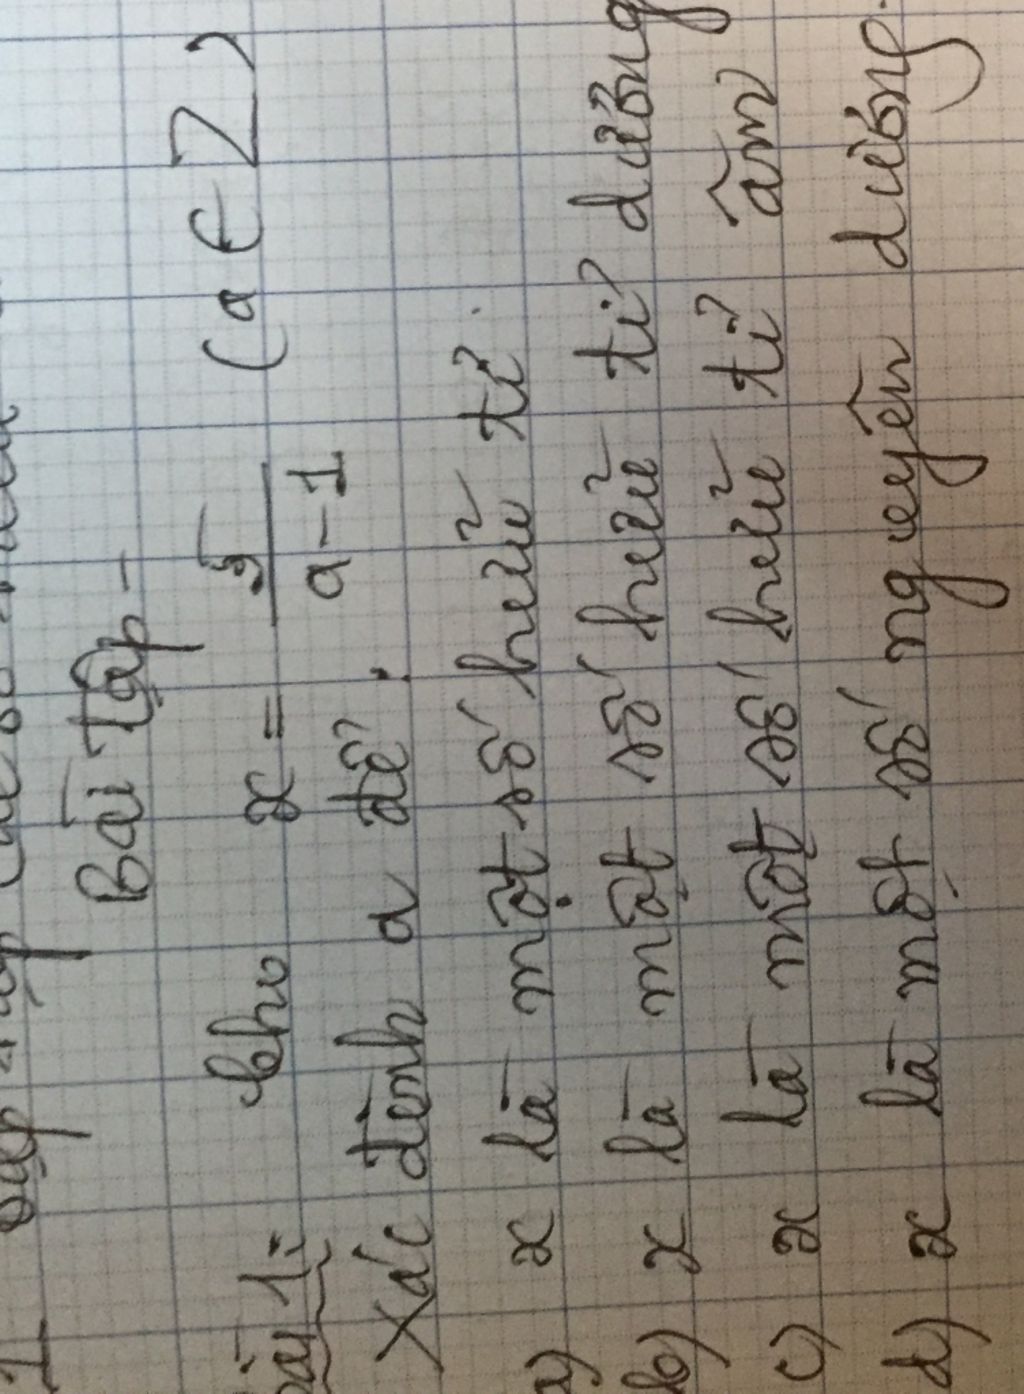 Bài tập
Bài 1: Cho x = 5/(a-1) (a ∈ Z)
Xác định a để:
a) x là một số hữu tỉ.
b) x là một số hữu tỉ dương
c) x là một số hữu tỉ âm
d) x là một số nguyên dương.